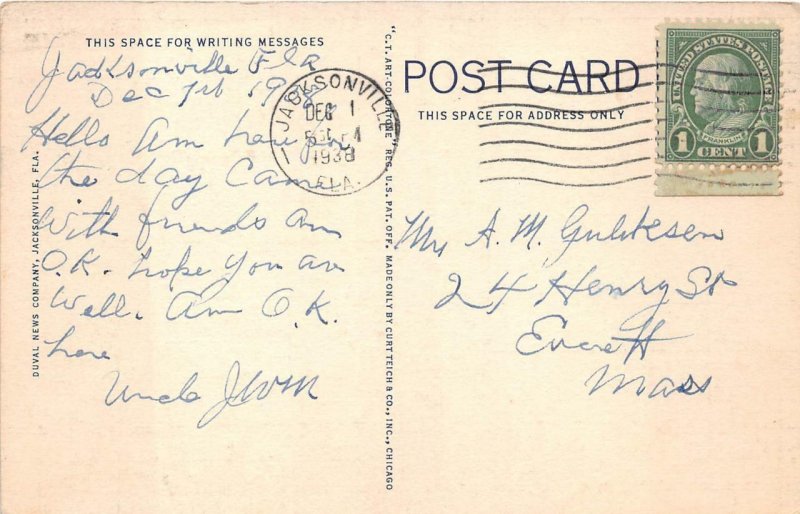 THIS SPACE FOR WRITING MESSAGES
Jacksonville Fla
Dec 1st 1938
Hello Am here for
the day Came
With friends am
O.K. hope you are
Well. Am O.K.
here
Uncle
DUVAL NEWS COMPANY, JACKSONVILLE, FLA.
"C.T. ART-COLORTONE" REG. U.S. PAT. OFF. MADE ONLY BY CURT TEICH & CO., INC., CHICAGO
JACKSONVILLE
DEC 1
1938
FLA.
POST CARD
THIS SPACE FOR ADDRESS ONLY
UNITED STATES POSTAGE
FRANKLIN
1 CENT 1
A. M.
24 Henry St
Everett
Mass